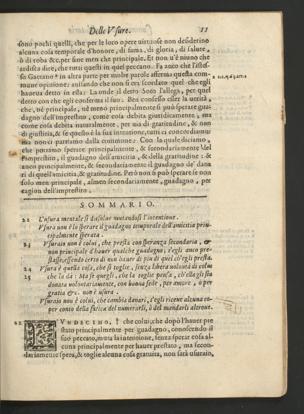 Delle Vsure. 11
sono pochi quelli, che per le loco opere uirtuose non desiderino
alcuna cosa temporale d'honore, di fama, di gloria, di salute,
ò di roba &c. per fine men che principale. Et non u'è niuno che
ardisca dire, che tutti questi in quel peccano. Fa anco che l'istes-
so Gaetano † in altra parte per molte parole afferma questa com-
mune opinione: ausando che non si era scordato quel che egli
haueua detto in essa: La onde il detto Soto l'allega, per quel
detto con che egli conferma il suo. Ben confesso esser la uerità,
che, nè principale, nè meno principalmente si può sperare gua-
dagno dell'imprestito, come cosa debita giustidicialmente, ma
come cosa debita naturalmente, per uia di gratitudine, & non
di giustitia, & se questo è la sua intentione, tutti ci concordiamo
ma non ci partiamo dalla commune: Con la quale diciamo,
che possiamo sperare principalmente, & secondariamente del
l'imprestito, il guadagno dell'amicitia, & della gratitudine: &
anco principalmente, & secondariamente il guadagno de' dana
ri di quell'amicitia, & gratitudine. Però non si può sperare se non
solo men principale, almen secondariamente, guadagno, per
ragion dell'imprestito.
SOMMARIO.
22 L'usura mentale si dissolue mutandosi l'intentione.
Vsura non è lo sperare il guadagno temporale dell'amicitia prin-
cipalmente sperata.
23 Vsuraio non è colui, che presta con speranza secondaria, &
non principale d'hauer qualche guadagno; s'egli anco pre-
stasse, essendo certo di non hauer di piu di quel ch'egli presta.
24 Vsura è quella cosa, che si toglie, senza libera uolontà di colui
che la dà: Ma se quegli, che la toglie pensa, ch'ella gli sia
donata uolontariamente, con buona fede, per amore, o per
gratia &c. non è usura.
Vsuraio non è colui, che cambia danari, s'egli riceue alcuna co-
sa per conto della fatica del numerarli, ò del mandarli altroue.
22 VNDECIMO, † che colui; che dopò l'hauer pre
stato principalmente per guadagno, conoscendo il
suo peccato, muta la intentione, senza sperar cosa al-
cuna principalmente per hauer prestato, ma secon-
dariamente spera, & toglie alcuna cosa gratuita, non sarà usuraio,